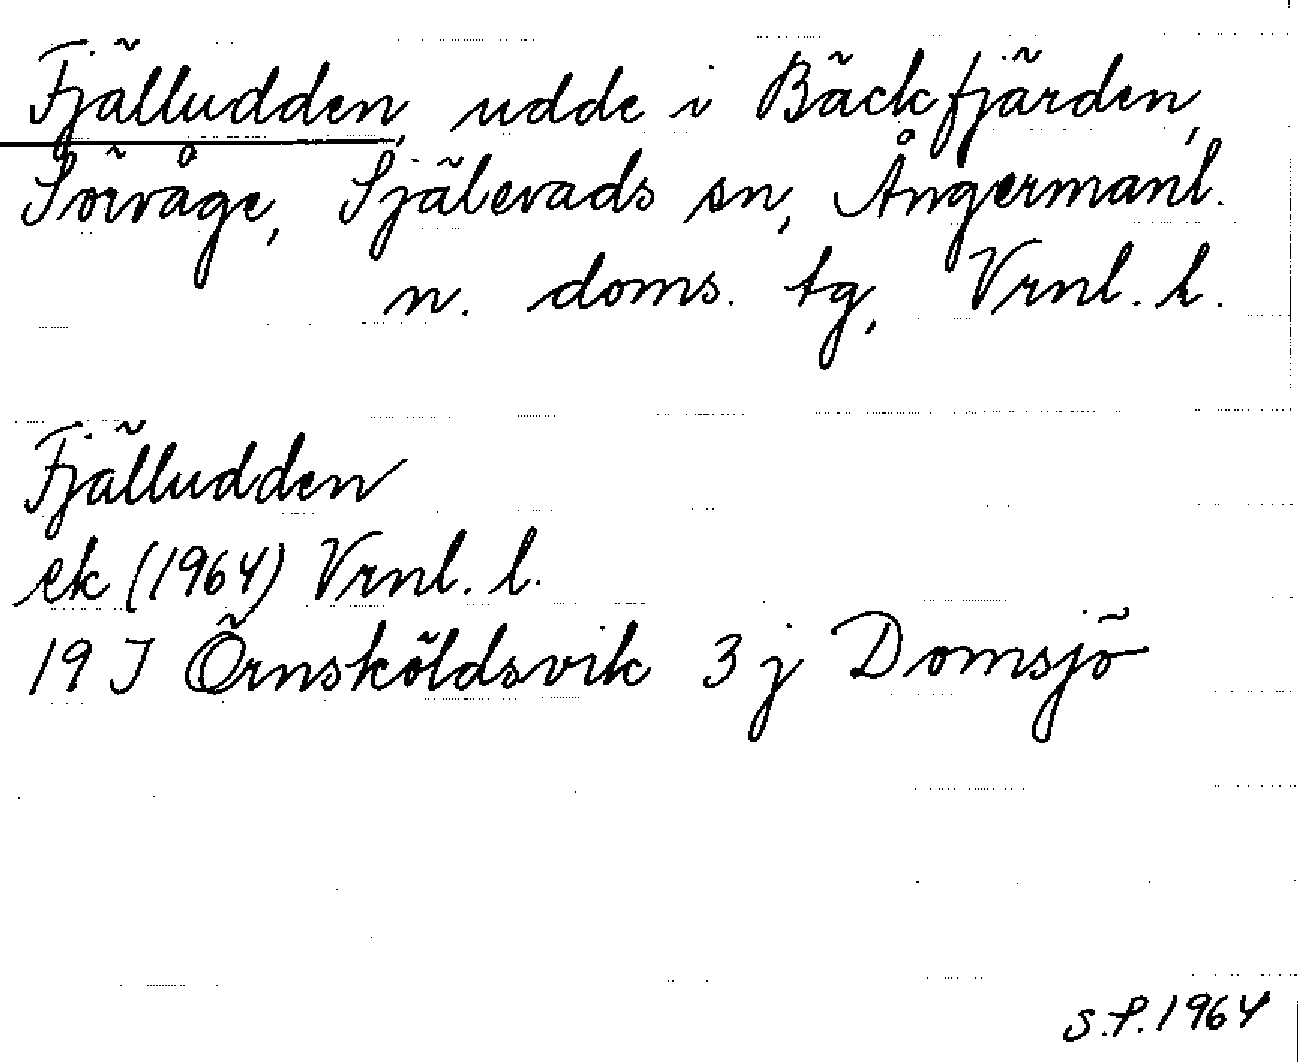 Fjälludden, udde i Bäckfjärden,
Sörvåge, Själevads sn, Ångermanl.
n. doms. tg, Vrnl. l.
Fjälludden
ek (1964) Vrnl. l.
19 J Örnsköldsvik 3 j Domsjö
S.P. 1964